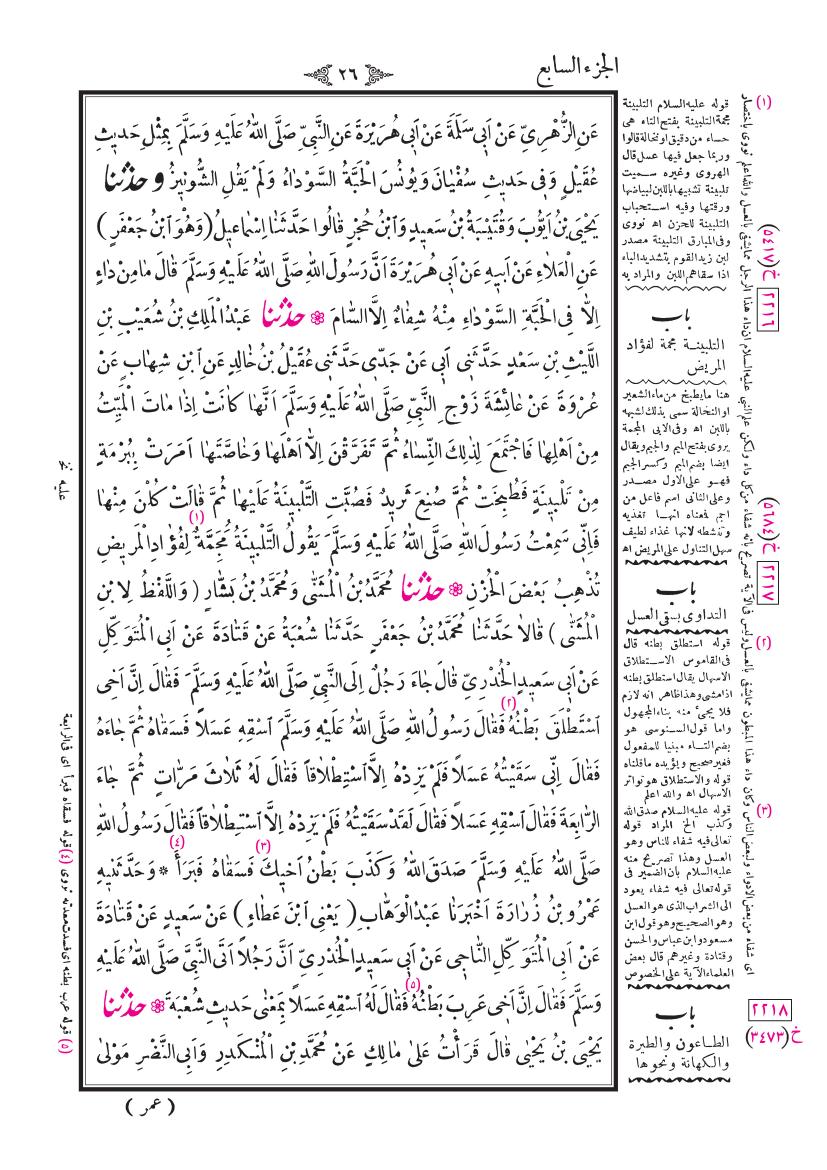 الجزء السابع
٢٦
عَنِ الزُّهْرِىِّ عَنْ اَبى سَلَمَةَ عَنْ اَبى هُرَيْرَةَ عَنِ النَّبِىِّ صَلَّى اللهُ عَلَيْهِ وَسَلَّمَ بِمِثْلِ حَديثِ
عُقَيْلٍ وَفى حَديثِ سُفْيَانَ وَيُونُسَ الْحَبَّةُ السَّوْدَاءُ وَلَمْ يَقُلِ الشُّونِيزُ و حدثنا
يَحْيَى بْنُ اَيُّوبَ وَقُتَيْبَةُ بْنُ سَعيدٍ وَابْنُ حُجْرٍ قَالُوا حَدَّثَنَا اِسْمَاعيلُ (وَهُوَ ابْنُ جَعْفَرٍ)
عَنِ الْعَلَاءِ عَنْ اَبيهِ عَنْ اَبى هُرَيْرَةَ اَنَّ رَسُولَ اللهِ صَلَّى اللهُ عَلَيْهِ وَسَلَّمَ قَالَ مَا مِنْ دَاءٍ
اِلَّا فِى الْحَبَّةِ السَّوْدَاءِ مِنْهُ شِفَاءٌ اِلَّا السَّامَ ۞ حدثنا عَبْدُ الْمَلِكِ بْنُ شُعَيْبِ بْنِ
اللَّيْثِ بْنِ سَعْدٍ حَدَّثَنى اَبى عَنْ جَدّى حَدَّثَنى عُقَيْلُ بْنُ خَالِدٍ عَنِ ابْنِ شِهَابٍ عَنْ
عُرْوَةَ عَنْ عَائِشَةَ زَوْجِ النَّبِىِّ صَلَّى اللهُ عَلَيْهِ وَسَلَّمَ اَنَّهَا كَانَتْ اِذَا مَاتَ الْمَيِّتُ
مِنْ اَهْلِهَا فَاجْتَمَعَ لِذٰلِكَ النِّسَاءُ ثُمَّ تَفَرَّقْنَ اِلَّا اَهْلَهَا وَخَاصَّتَهَا اَمَرَتْ بِبُرْمَةٍ
مِنْ تَلْبينَةٍ فَطُبِخَتْ ثُمَّ صُنِعَ ثَريدٌ فَصُبَّتِ التَّلْبينَةُ عَلَيْهَا ثُمَّ قَالَتْ كُلْنَ مِنْهَا
فَاِنّى سَمِعْتُ رَسُولَ اللهِ صَلَّى اللهُ عَلَيْهِ وَسَلَّمَ يَقُولُ التَّلْبينَةُ مُجِمَّةٌ (١) لِفُؤَادِ الْمَريضِ
تُذْهِبُ بَعْضَ الْحُزْنِ ۞ حدثنا مُحَمَّدُ بْنُ الْمُثَنّٰى وَمُحَمَّدُ بْنُ بَشَّارٍ (وَاللَّفْظُ لِابْنِ
الْمُثَنّٰى) قَالَا حَدَّثَنَا مُحَمَّدُ بْنُ جَعْفَرٍ حَدَّثَنَا شُعْبَةُ عَنْ قَتَادَةَ عَنْ اَبِى الْمُتَوَكِّلِ
عَنْ اَبى سَعيدٍ الْخُدْرِىِّ قَالَ جَاءَ رَجُلٌ اِلَى النَّبِىِّ صَلَّى اللهُ عَلَيْهِ وَسَلَّمَ فَقَالَ اِنَّ اَخى
اسْتَطْلَقَ بَطْنُهُ (٢) فَقَالَ رَسُولُ اللهِ صَلَّى اللهُ عَلَيْهِ وَسَلَّمَ اسْقِهِ عَسَلًا فَسَقَاهُ ثُمَّ جَاءَهُ
فَقَالَ اِنّى سَقَيْتُهُ عَسَلًا فَلَمْ يَزِدْهُ اِلَّا اسْتِطْلَاقاً فَقَالَ لَهُ ثَلَاثَ مَرَّاتٍ ثُمَّ جَاءَ
الرَّابِعَةَ فَقَالَ اسْقِهِ عَسَلًا فَقَالَ لَقَدْ سَقَيْتُهُ فَلَمْ يَزِدْهُ اِلَّا اسْتِطْلَاقاً فَقَالَ رَسُولُ اللهِ
صَلَّى اللهُ عَلَيْهِ وَسَلَّمَ صَدَقَ اللهُ وَكَذَبَ بَطْنُ اَخيكَ (٣) فَسَقَاهُ فَبَرَأَ (٤) * وَحَدَّثَنيهِ
عَمْرُو بْنُ زُرَارَةَ اَخْبَرَنَا عَبْدُ الْوَهَّابِ (يَعْنِى ابْنَ عَطَاءٍ) عَنْ سَعيدٍ عَنْ قَتَادَةَ
عَنْ اَبِى الْمُتَوَكِّلِ النَّاجِى عَنْ اَبى سَعيدٍ الْخُدْرِىِّ اَنَّ رَجُلًا اَتَى النَّبِىَّ صَلَّى اللهُ عَلَيْهِ
وَسَلَّمَ فَقَالَ اِنَّ اَخى عَرِبَ بَطْنُهُ (٥) فَقَالَ لَهُ اسْقِهِ عَسَلًا بِمَعْنٰى حَديثِ شُعْبَةَ ۞ حدثنا
يَحْيَى بْنُ يَحْيٰى قَالَ قَرَأْتُ عَلٰى مَالِكٍ عَنْ مُحَمَّدِ بْنِ الْمُنْكَدِرِ وَاَبِى النَّضْرِ مَوْلٰى
( عمر )
(١)
قوله عليه السلام التلبينة
مجمة التلبينة بفتح التاء هى
حساء من دقيق او نخالة قالوا
وربما جعل فيها عسل قال
الهروى وغيره سميت
تلبينة تشبيها باللبن لبياضها
ورقتها وفيه استحباب
التلبينة للحزن اه نووى
وفى المبارق التلبينة مصدر
لبن زيد القوم بتشديد الباء
اذا سقاهم اللبن والمراد به
باب
التلبينة مجمة لفؤاد
المريض
هنا ما يطبخ من ماء الشعير
او النخالة سمى بذلك لشبهه
باللبن اه وفى الابى المجمة
يروى بفتح الميم والجيم ويقال
ايضا بضم الميم وكسر الجيم
فهو على الاول مصدر
وعلى الثانى اسم فاعل من
اجم فمعناه انها تغذيه
وتنشطه لانها غذاء لطيف
سهل التناول على المريض اه
باب
التداوى بسقى العسل
(٢)
قوله استطلق بطنه قال
فى القاموس الاستطلاق
الاسهال يقال استطلق بطنه
اذا مشى وهذا ظاهر انه لازم
فلا يجئ منه بناء المجهول
واما قول السنوسى هو
بضم التاء مبنيا للمفعول
فغير صحيح ويؤيده ما قلناه
قوله والاستطلاق هو تواتر
الاسهال اه والله اعلم
(٣)
قوله عليه السلام صدق الله
وكذب الخ المراد قوله
تعالى فيه شفاء للناس وهو
العسل وهذا تصريح منه
عليه السلام بان الضمير فى
قوله تعالى فيه شفاء يعود
الى الشراب الذى هو العسل
وهو الصحيح وهو قول ابن
مسعود وابن عباس والحسن
وقتادة وغيرهم قال بعض
العلماء الآية على الخصوص
باب
الطاعون والطيرة
والكهانة ونحوها
اى شفاء من بعض الادواء ولبعض الناس وكان داء هذا المبطون مما يشفى بالعسل وليس فى الآية تصريح بانه شفاء من كل داء ولكن علم النبى عليه السلام ان داء هذا الرجل مما يشفى بالعسل والله اعلم نووى باختصار
خ (٥٤١٧)
٢٢١٦
خ (٥٦٨٤)
٢٢١٧
٢٢١٨
خ (٣٤٧٣)
عليه نخ
(٤) قوله فسقاه فبرأ اى فى الرابعة
(٥) قوله عرب بطنه اى فسدت معدته نووى